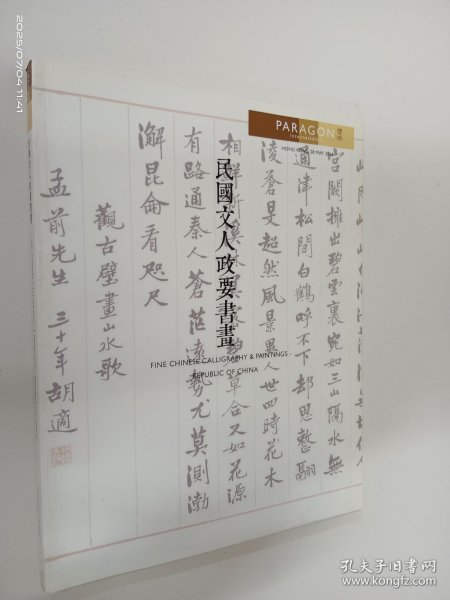 PARAGON
INTERNATIONAL
HONG KONG 28 MAY
民國文人政要書畫
FINE CHINESE CALLIGRAPHY & PAINTINGS
REPUBLIC OF CHINA
宮闕擁出碧雲裏宛如三山隔水無
通津松間白鶴呼不下却思整翮
淩蒼旻超然風景異人世四時花木
草合又如花源
有路通秦人蒼茫遠勢尤莫測渤
澥昆侖看咫尺
觀古壁畫山水歌
孟前先生 三十年胡適
2025/07/04 11:41
孔夫子旧书网
kongfz.com